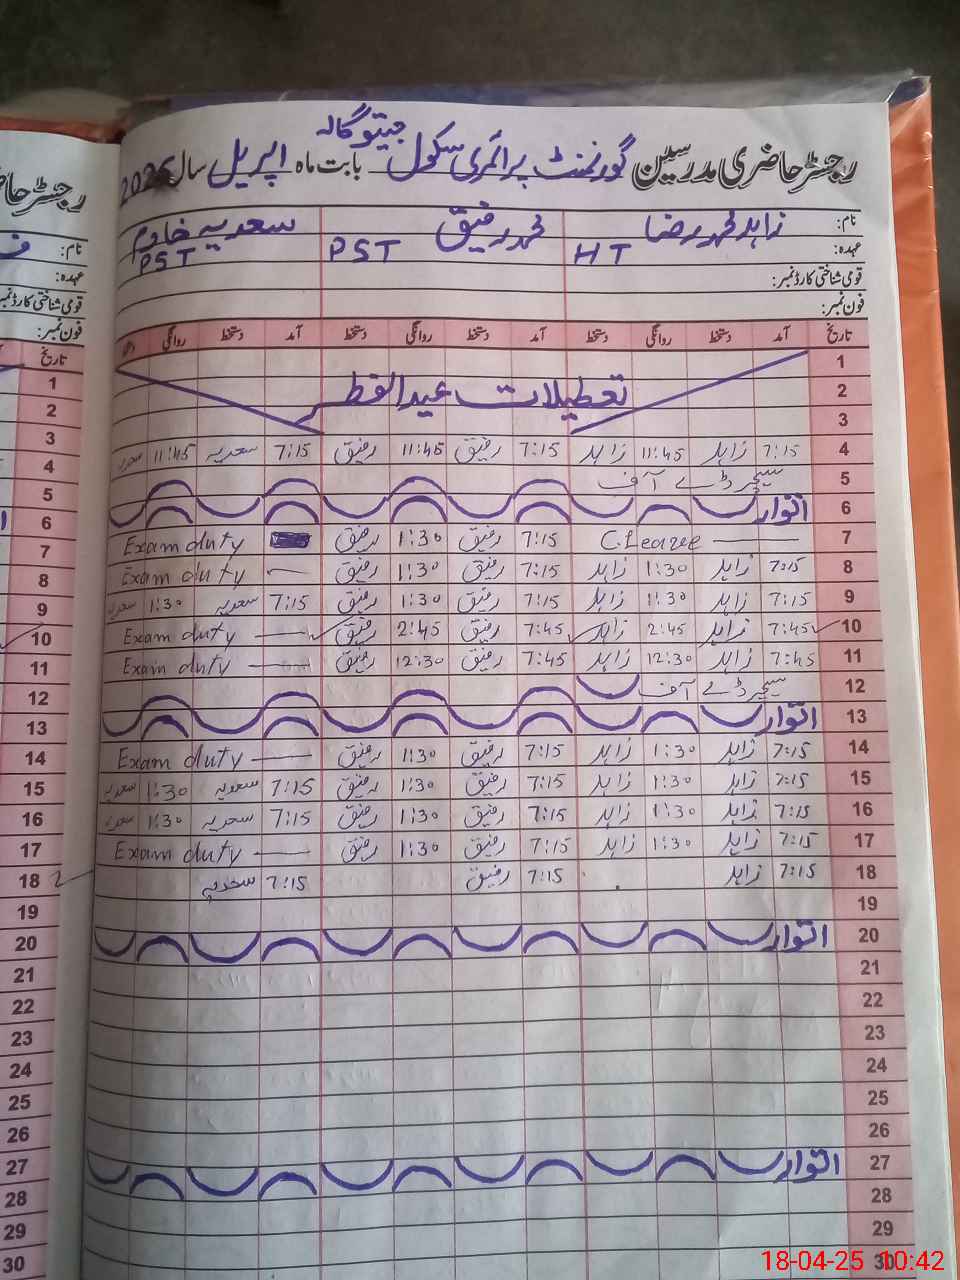 رجسٹر حاضری مدرسین گورنمنٹ پرائمری سکول جیتو گالہ بابت ماہ اپریل سال 2025
نام: زاہد محمد رضا محمد رفیق سعدیہ خادم
عہدہ: HT PST PST
قومی شناختی کارڈ نمبر:
فون نمبر:
تاریخ آمد دستخط روانگی دستخط آمد دستخط روانگی دستخط آمد دستخط روانگی
1
2 تعطیلات عید الفطر
3
4 7:15 زاہد 11:45 زاہد 7:15 رفیق 11:45 رفیق 7:15 سعدیہ 11:45 سعدیہ
5 سیچر ڈے آف
6 اتوار
7 C.Leave 7:15 رفیق 1:30 رفیق Exam duty
8 7:15 زاہد 1:30 زاہد 7:15 رفیق 1:30 رفیق Exam duty
9 7:15 زاہد 11:30 زاہد 7:15 رفیق 1:30 رفیق 7:15 سعدیہ 1:30 سعدیہ
10 7:45 زاہد 2:45 زاہد 7:45 رفیق 2:45 رفیق Exam duty
11 7:45 زاہد 12:30 زاہد 7:45 رفیق 12:30 رفیق Exam duty
12 سیچر ڈے آف
13 اتوار
14 7:15 زاہد 1:30 زاہد 7:15 رفیق 1:30 رفیق Exam duty
15 7:15 زاہد 1:30 زاہد 7:15 رفیق 1:30 رفیق 7:15 سعدیہ 1:30 سعدیہ
16 7:15 زاہد 1:30 زاہد 7:15 رفیق 1:30 رفیق 7:15 سعدیہ 1:30 سعدیہ
17 7:15 زاہد 1:30 زاہد 7:15 رفیق 1:30 رفیق Exam duty
18 7:15 زاہد 7:15 رفیق 7:15 سعدیہ
19
20 اتوار
21
22
23
24
25
26
27 اتوار
28
29
30
رجسٹر حا
نام:
عہدہ:
قومی شناختی کارڈ نمبر
فون نمبر:
تاریخ
1
2
3
4
5
6
7
8
9
10
11
12
13
14
15
16
17
18
19
20
21
22
23
24
25
26
27
28
29
30
18-04-25 10:42